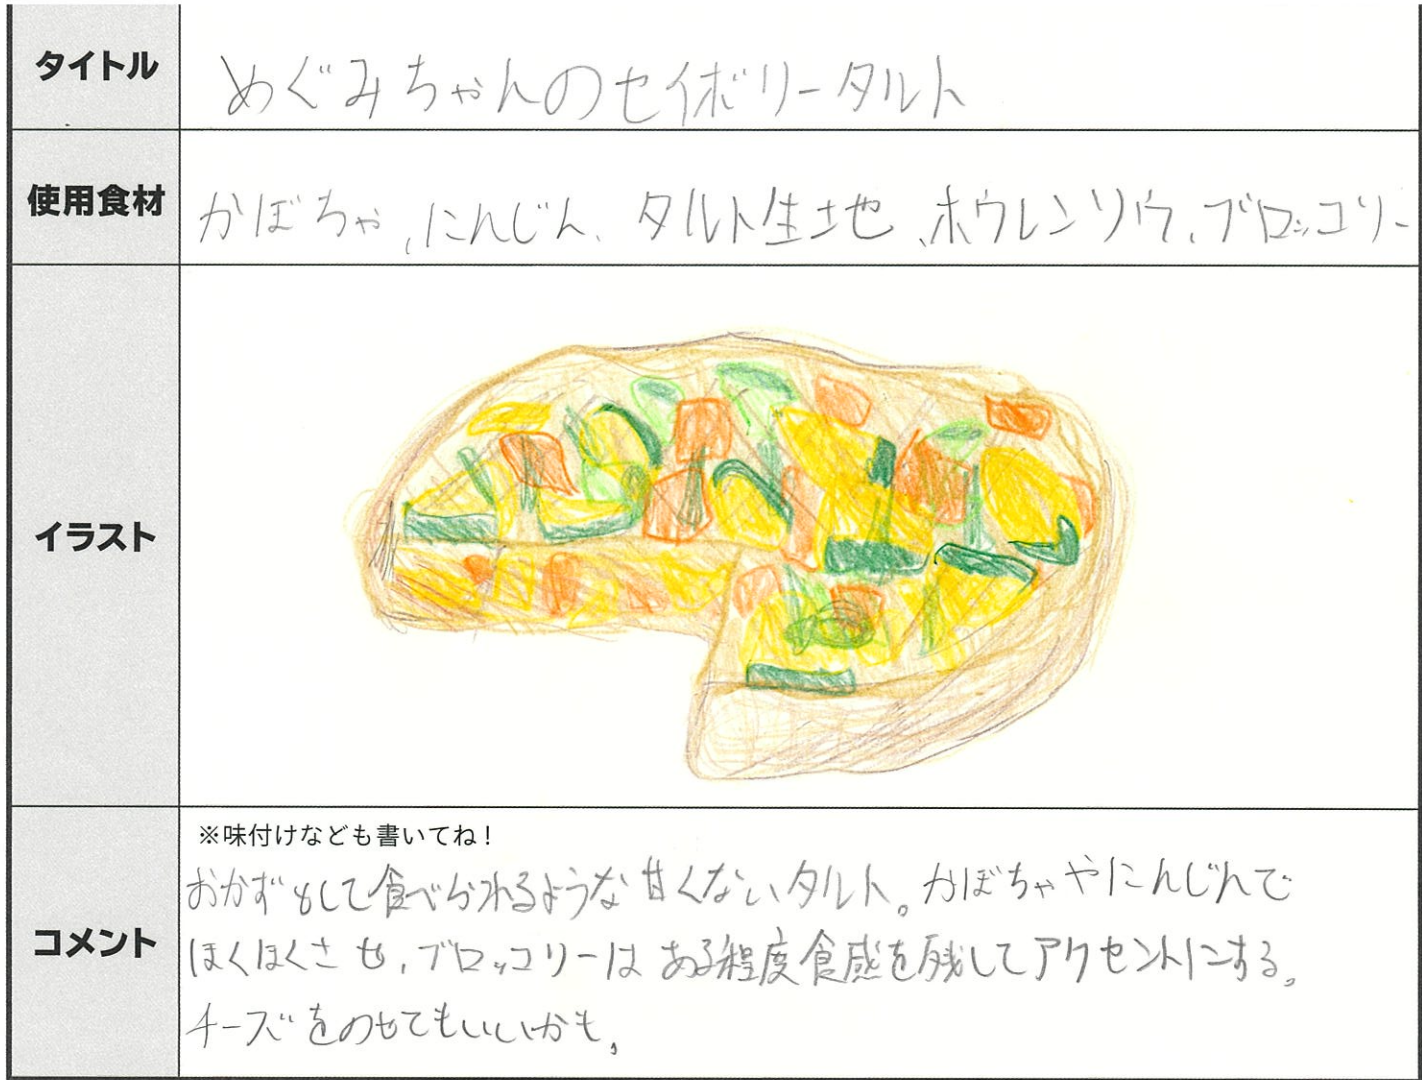 タイトル
めぐみちゃんのセイボリータルト
使用食材
かぼちゃ、にんじん、タルト生地、ホウレンソウ、ブロッコリー
イラスト
コメント
※味付けなども書いてね!
おかずとして食べられるような甘くないタルト。かぼちゃやにんじんで
ほくほくさも、ブロッコリーはある程度食感を残してアクセントにする。
チーズをのせてもいいかも。